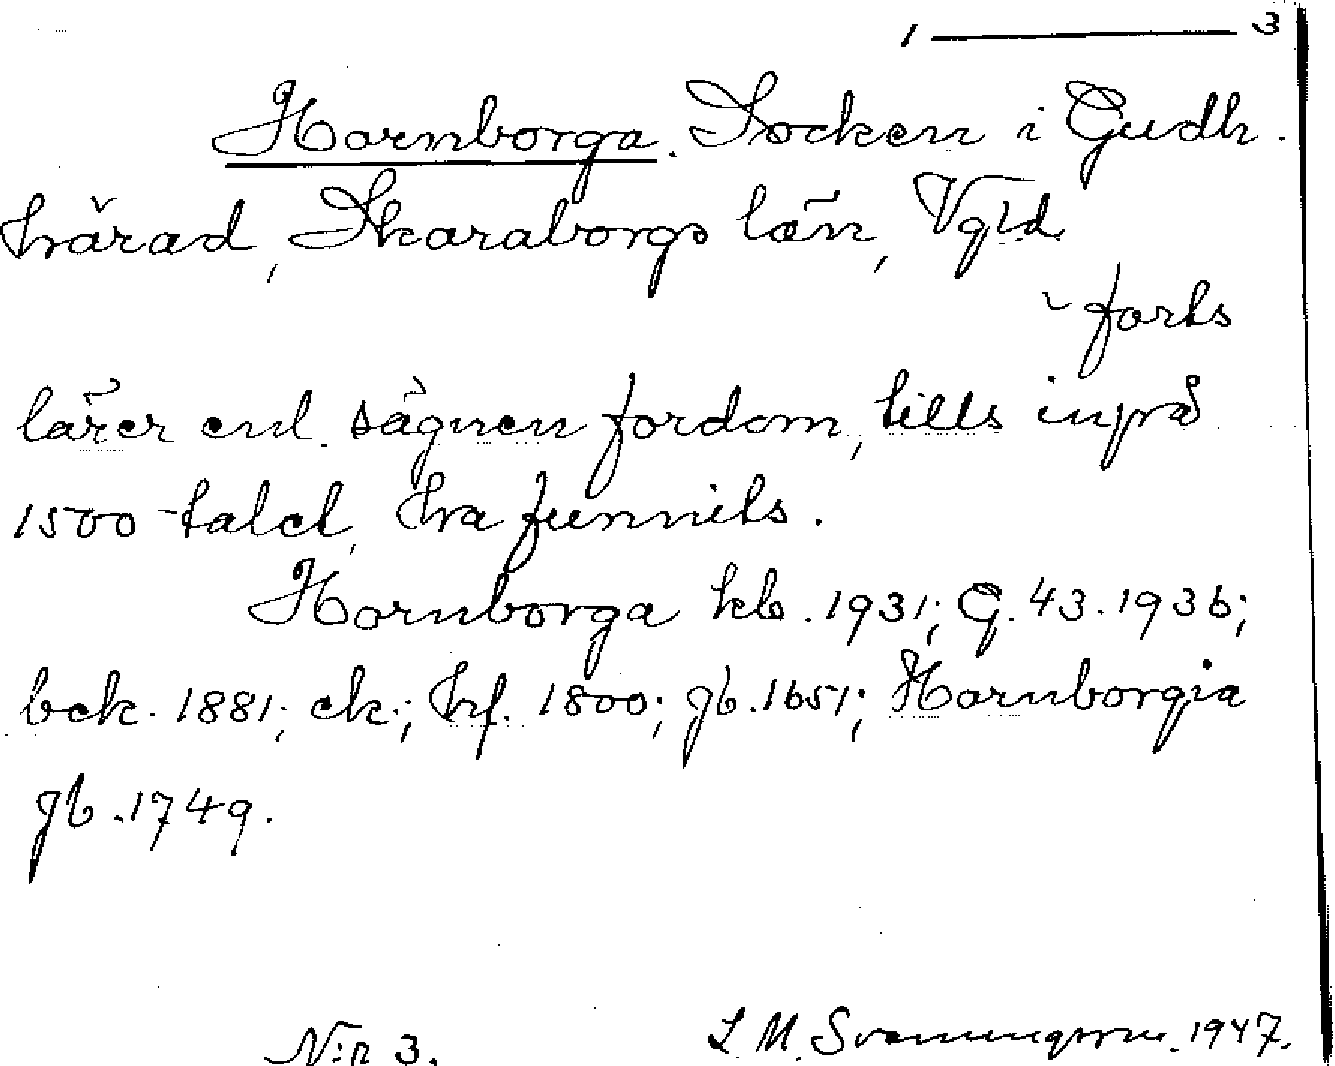 1 — 3
Hornborga. Socken i Gudh.
härad, Skaraborgs län, Vgtd
forts
lärer enl. sägnen fordom, tills inpå
1500-talet, ha funnits.
Hornborga kb. 1931; G. 43. 1936;
bek. 1881; ek.; hf. 1800; jb. 1651; Hornborgia
jb. 1749.
N:r 3.
L. M. Svenungsson. 1947.